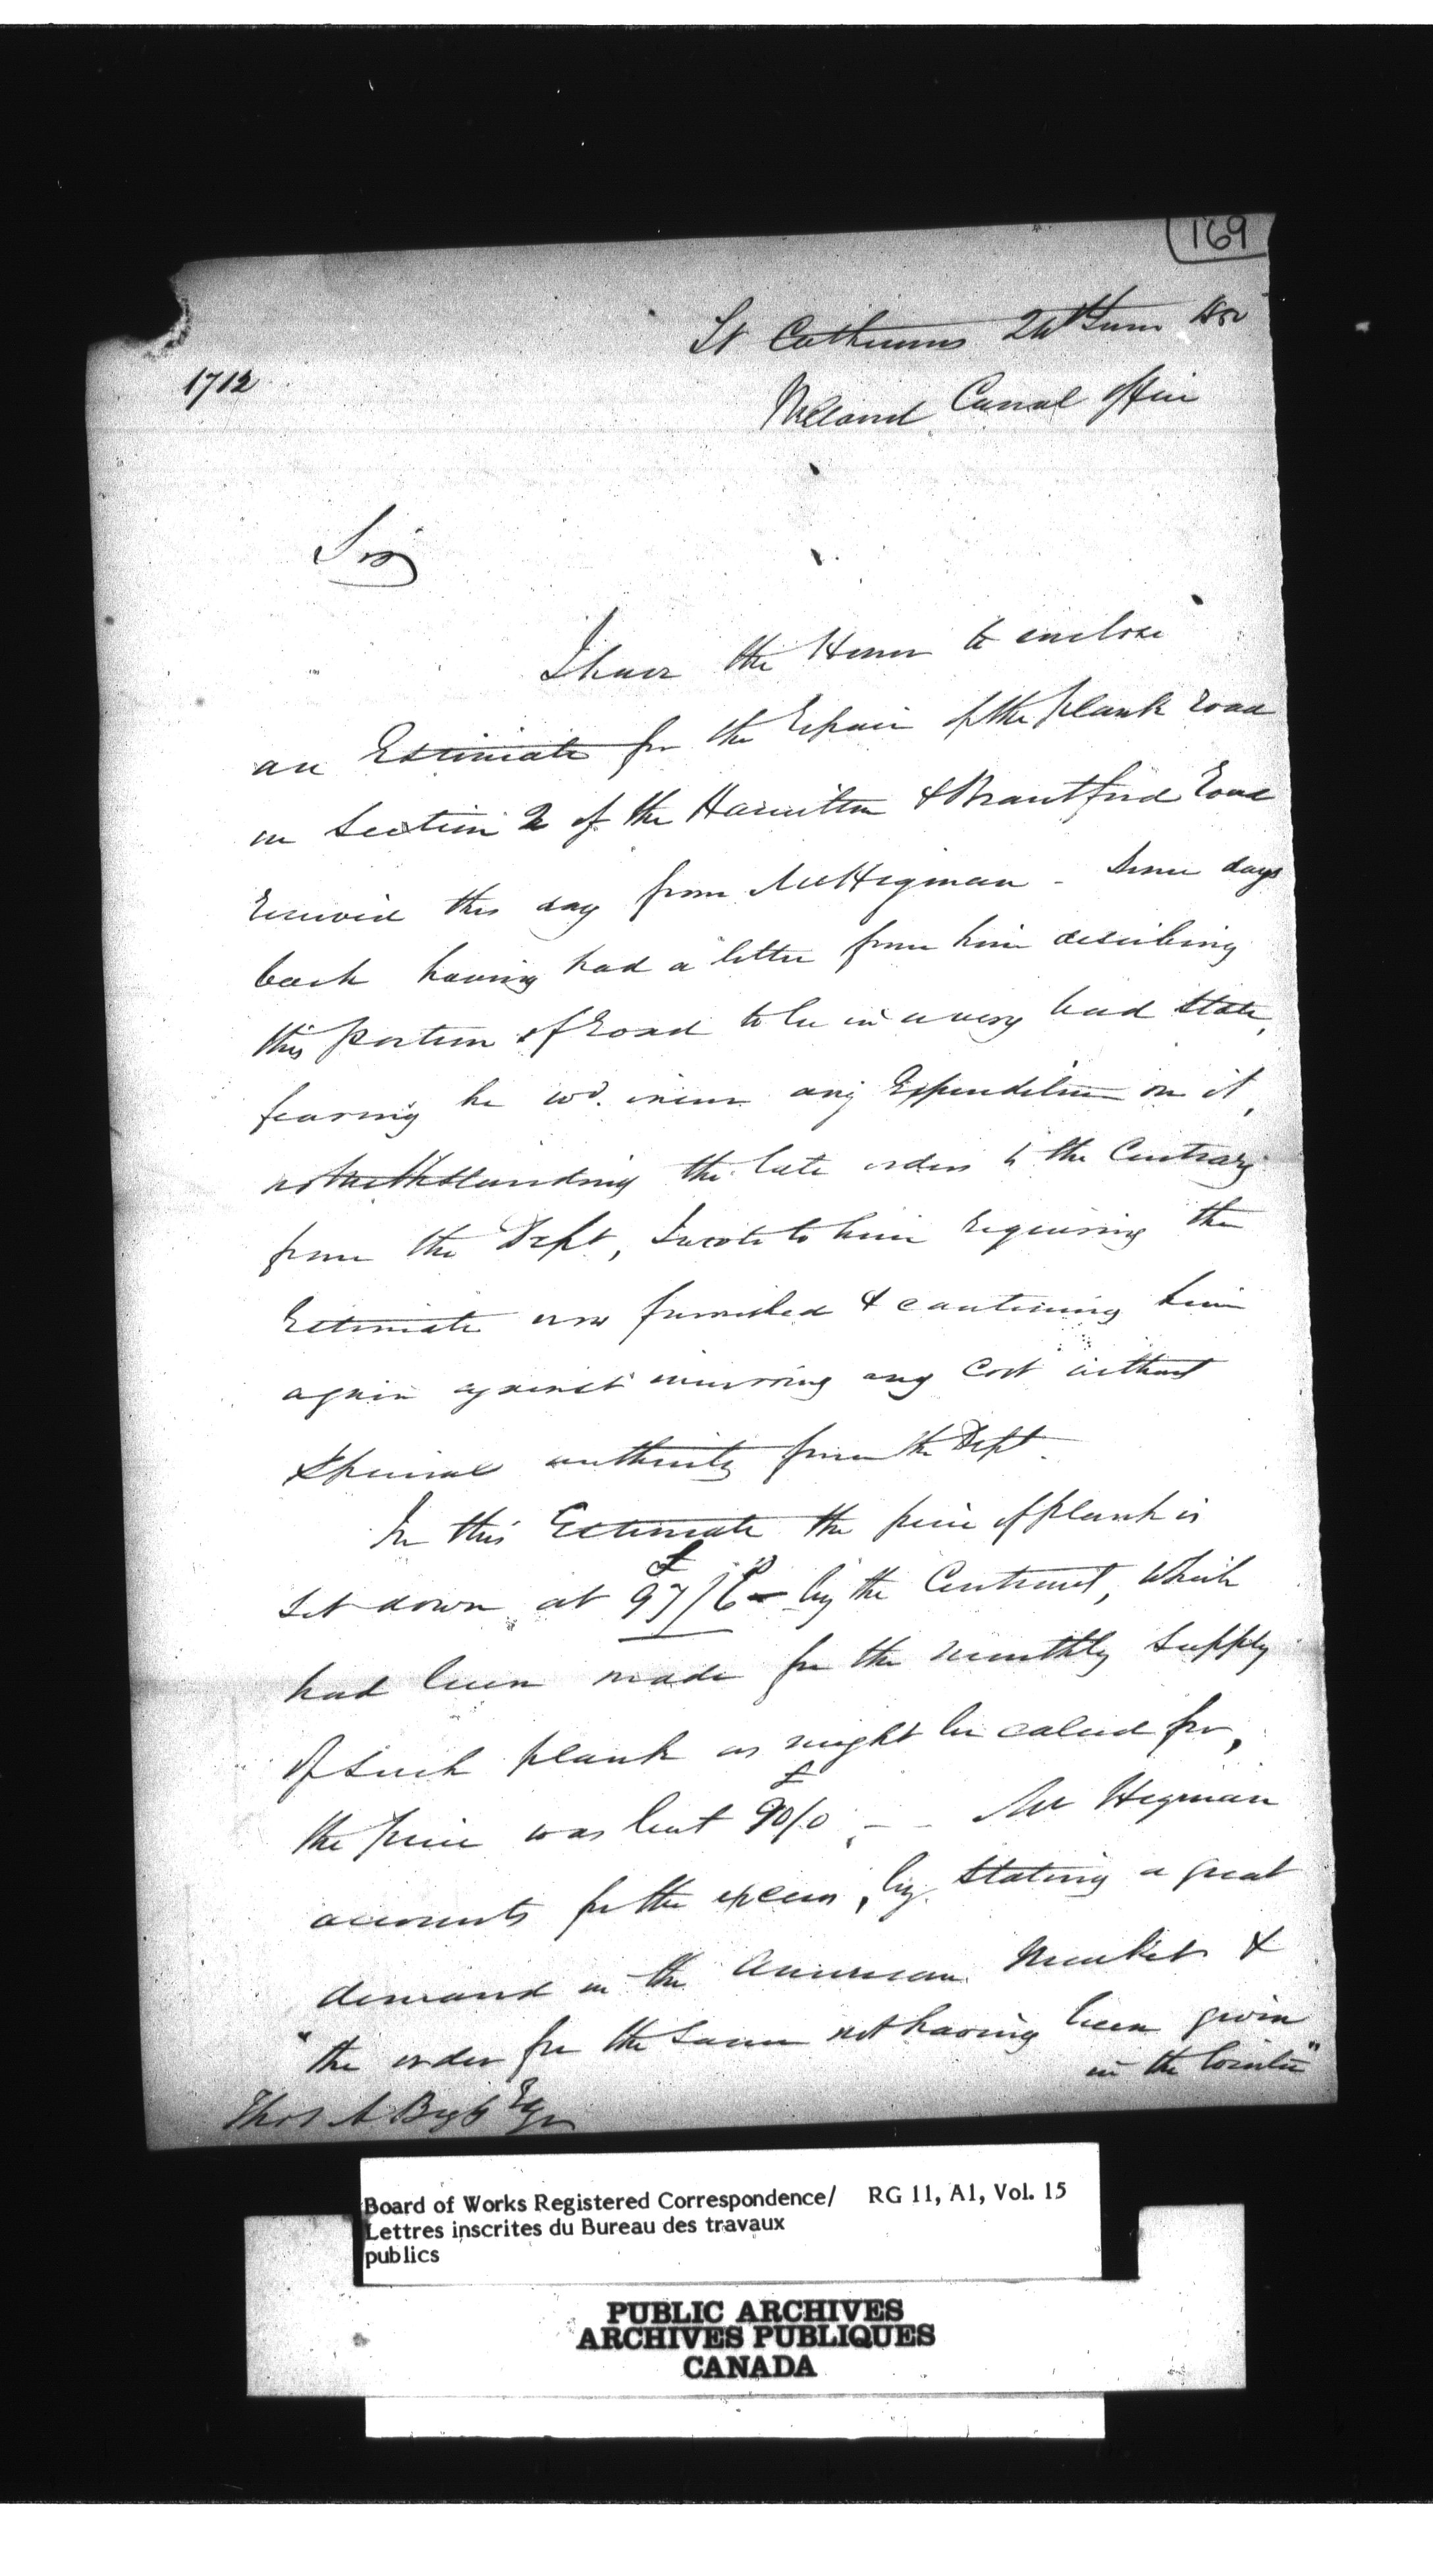 169
St Catherines 24th June
1712
Welland Canal Office
Sir
I have the Honor to enclose
an Estimate for the Repair of the plank road
on Section 2 of the Hamilton & Brantford Road
Received this day from Mr Hegman - Some days
back having had a letter from him describing
this portion of Road to be in a very bad state,
fearing he wd. incur any Expenditure on it,
notwithstanding the late orders to the Contrary
from the Dept, I wrote to him requiring the
Estimate now furnished & cautioning him
again against incurring any Cost without
Special authority from the Dept.
In this Estimate the price of plank is
set down at 97/6 - by the Contract, which
had been made for the monthly supply
of such plank as might be called for,
the price was but £90/0, - - Mr Hegman
accounts for the excess, by stating a great
demand in the American Market &
"the order for the same not having been given
in the Winter"
Thos A Begly Esqr
Board of Works Registered Correspondence/ RG 11, A1, Vol. 15
Lettres inscrites du Bureau des travaux
publics
PUBLIC ARCHIVES
ARCHIVES PUBLIQUES
CANADA